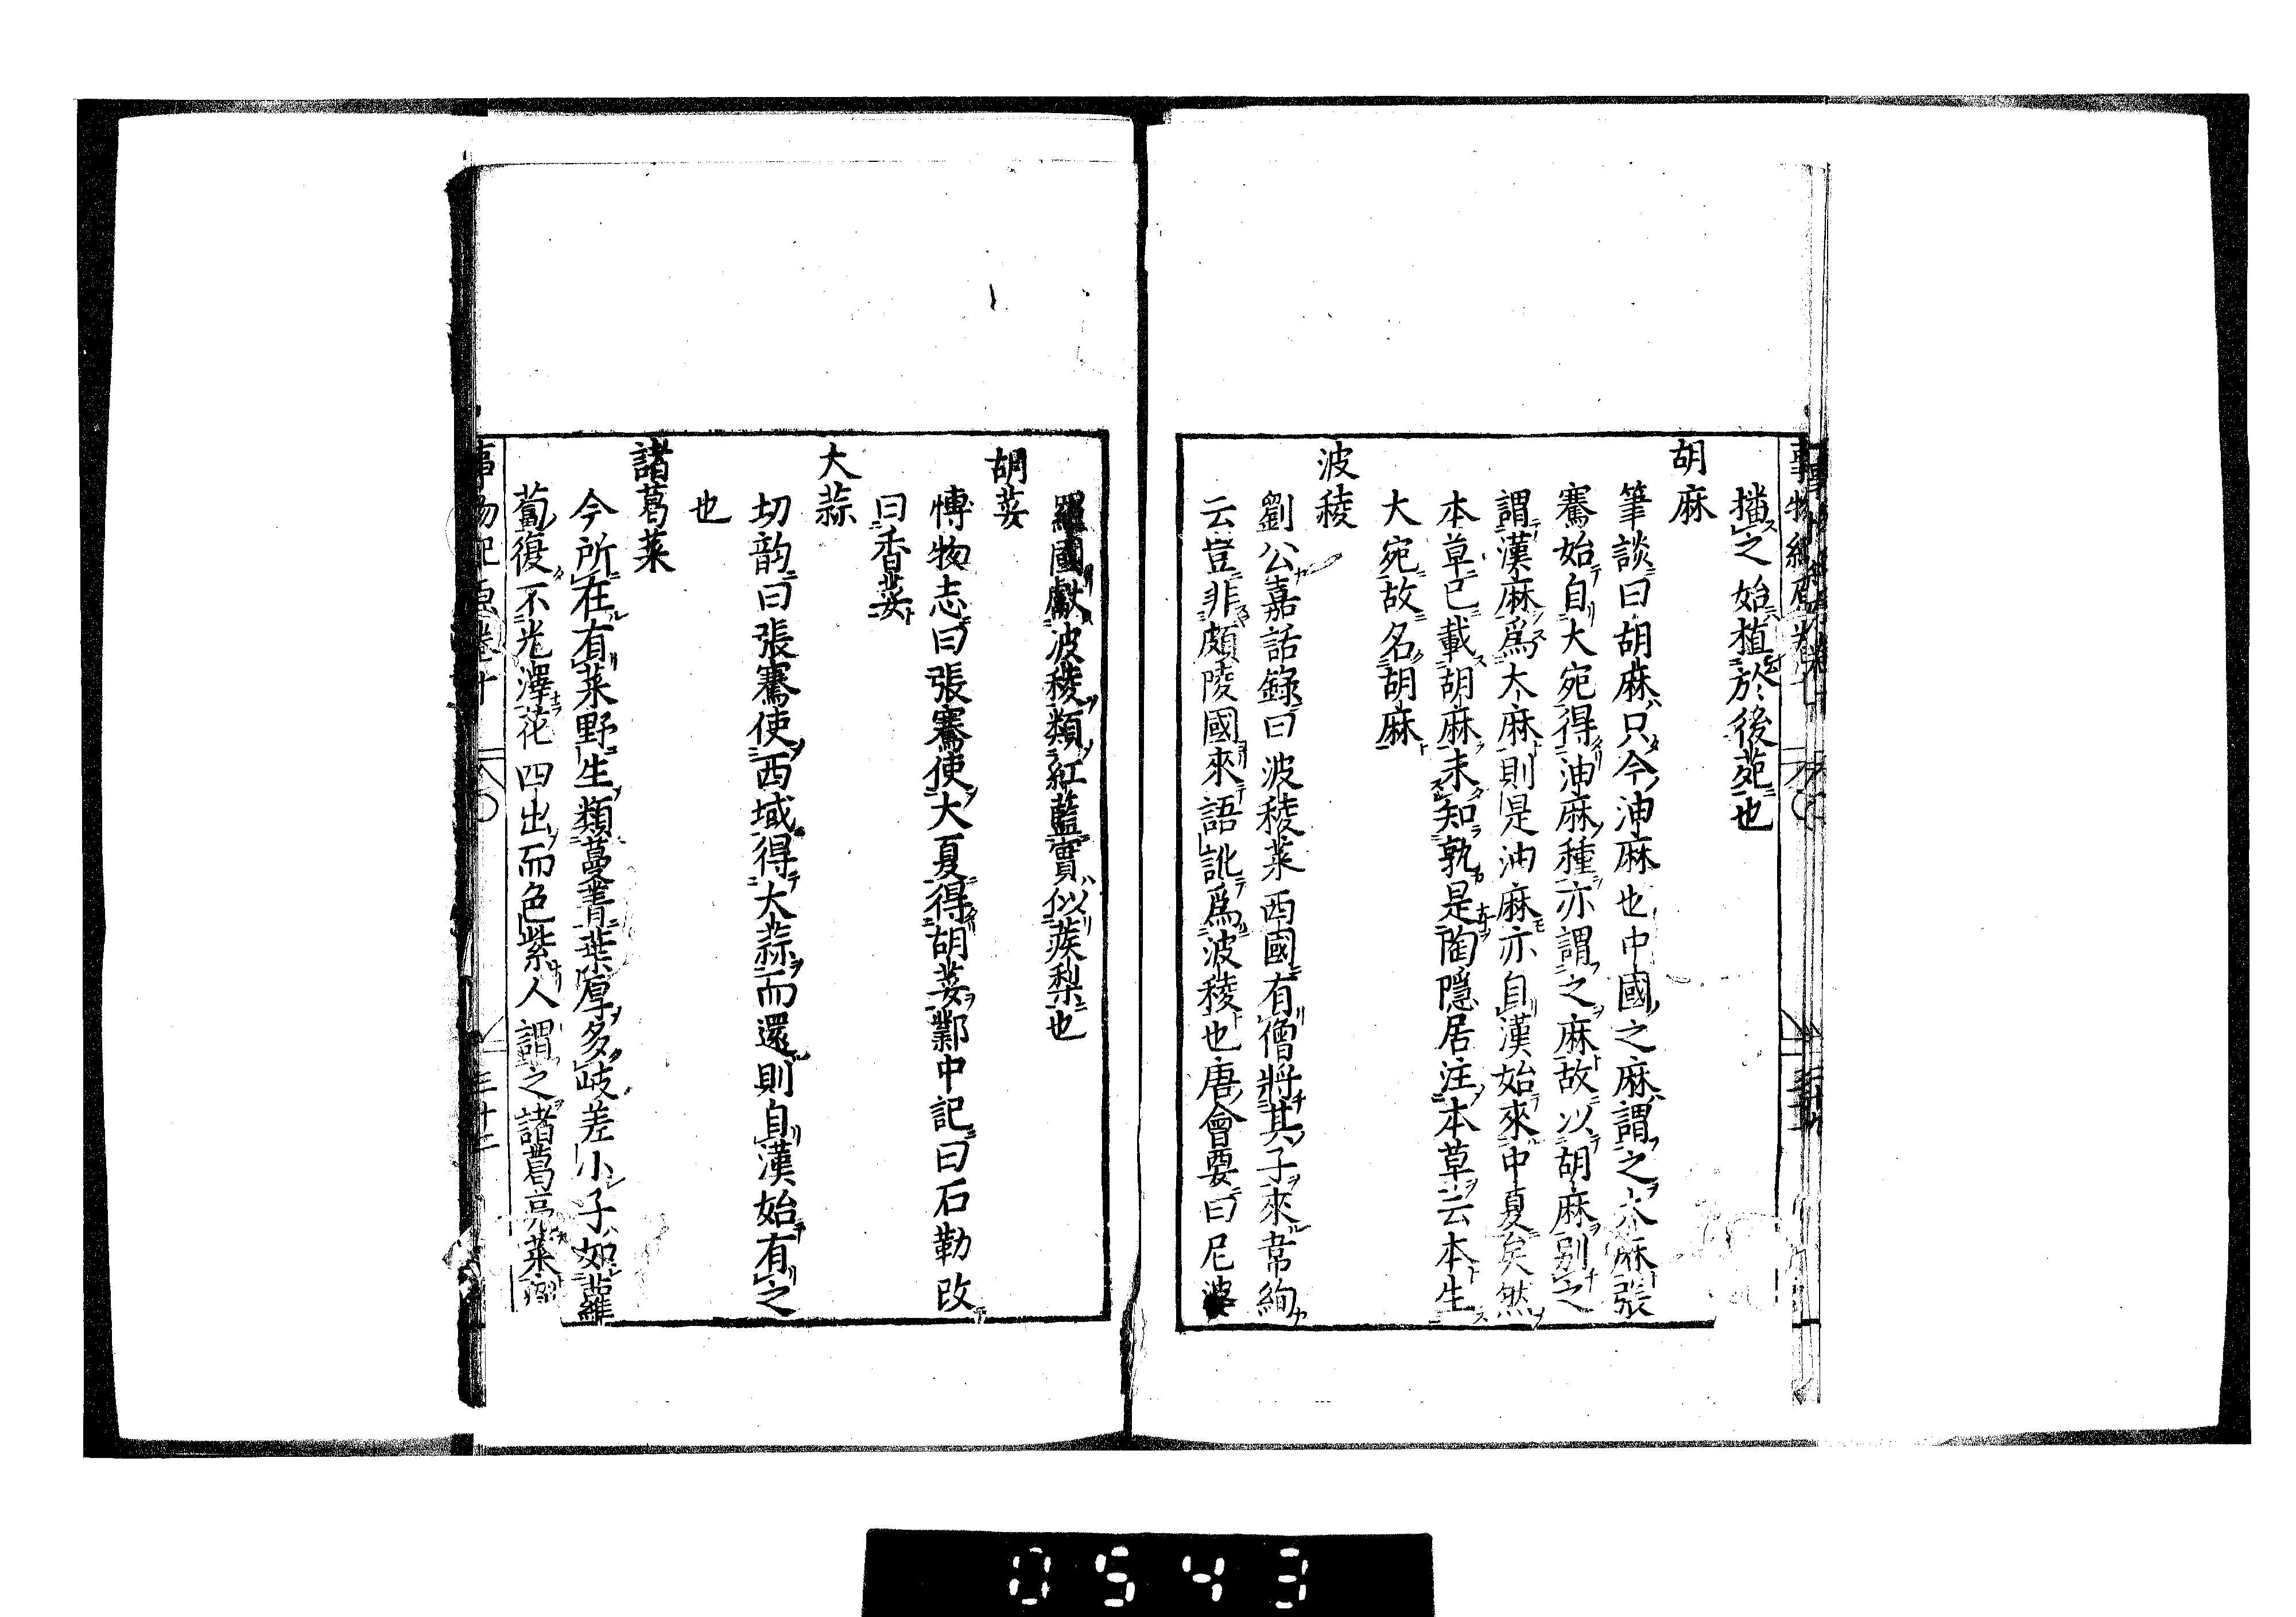 播之始植於後苑也
胡麻
筆談曰胡麻只今油麻也中國之麻謂之大麻張
騫始自大宛得油麻種亦謂之麻故以胡麻別之
謂漢麻爲大麻則是油麻亦自漢始來中夏矣然
本草已載胡麻未知孰是陶隱居注本草云本生
大宛故名胡麻
波稜
劉公嘉話錄曰波稜菜西國有僧將其子來常絢
云豈非頗陵國來語訛爲波稜也唐會要曰尼婆
羅國獻波稜類紅藍實似蒺梨也
胡荽
博物志曰張騫使大夏得胡荽鄴中記曰石勒改
曰香荽
大蒜
切韵曰張騫使西域得大蒜而還則自漢始有之
也
諸葛菜
今所在有菜野生類蔓菁葉厚多岐差小子如蘿
蔔復不光澤花四出而色紫人謂之諸葛亮菜
三十二
0543